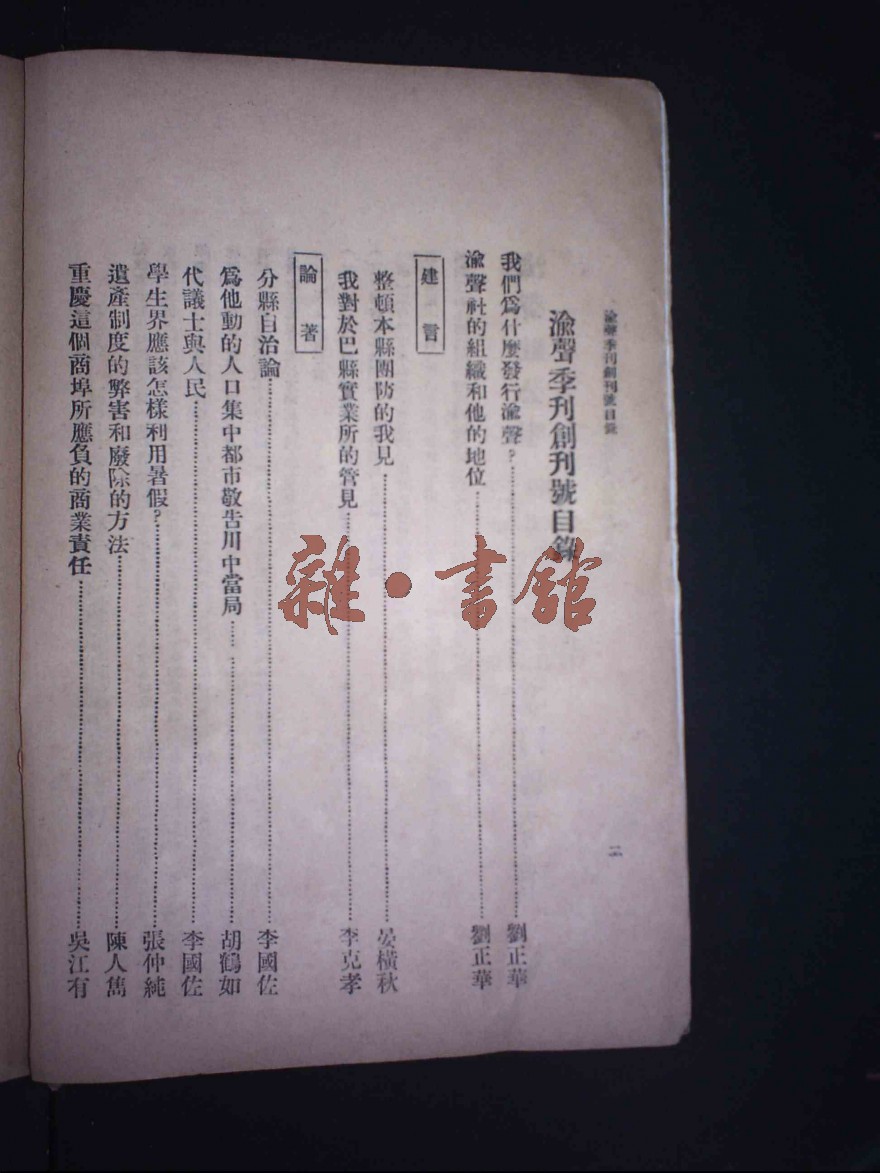 渝聲季刊創刊號目錄
二
渝聲季刊創刊號目錄
我們爲什麼發行渝聲?……劉正華
渝聲社的組織和他的地位……劉正華
建言
整頓本縣團防的我見……晏橫秋
我對於巴縣實業所的管見……李克孝
論著
分縣自治論……李國佐
爲他動的人口集中都市敬告川中當局……胡鶴如
代議士與人民……李國佐
學生界應該怎樣利用暑假?……張仲純
遺產制度的弊害和廢除的方法……陳人雋
重慶這個商埠所應負的商業責任……吳江有
雜·書館